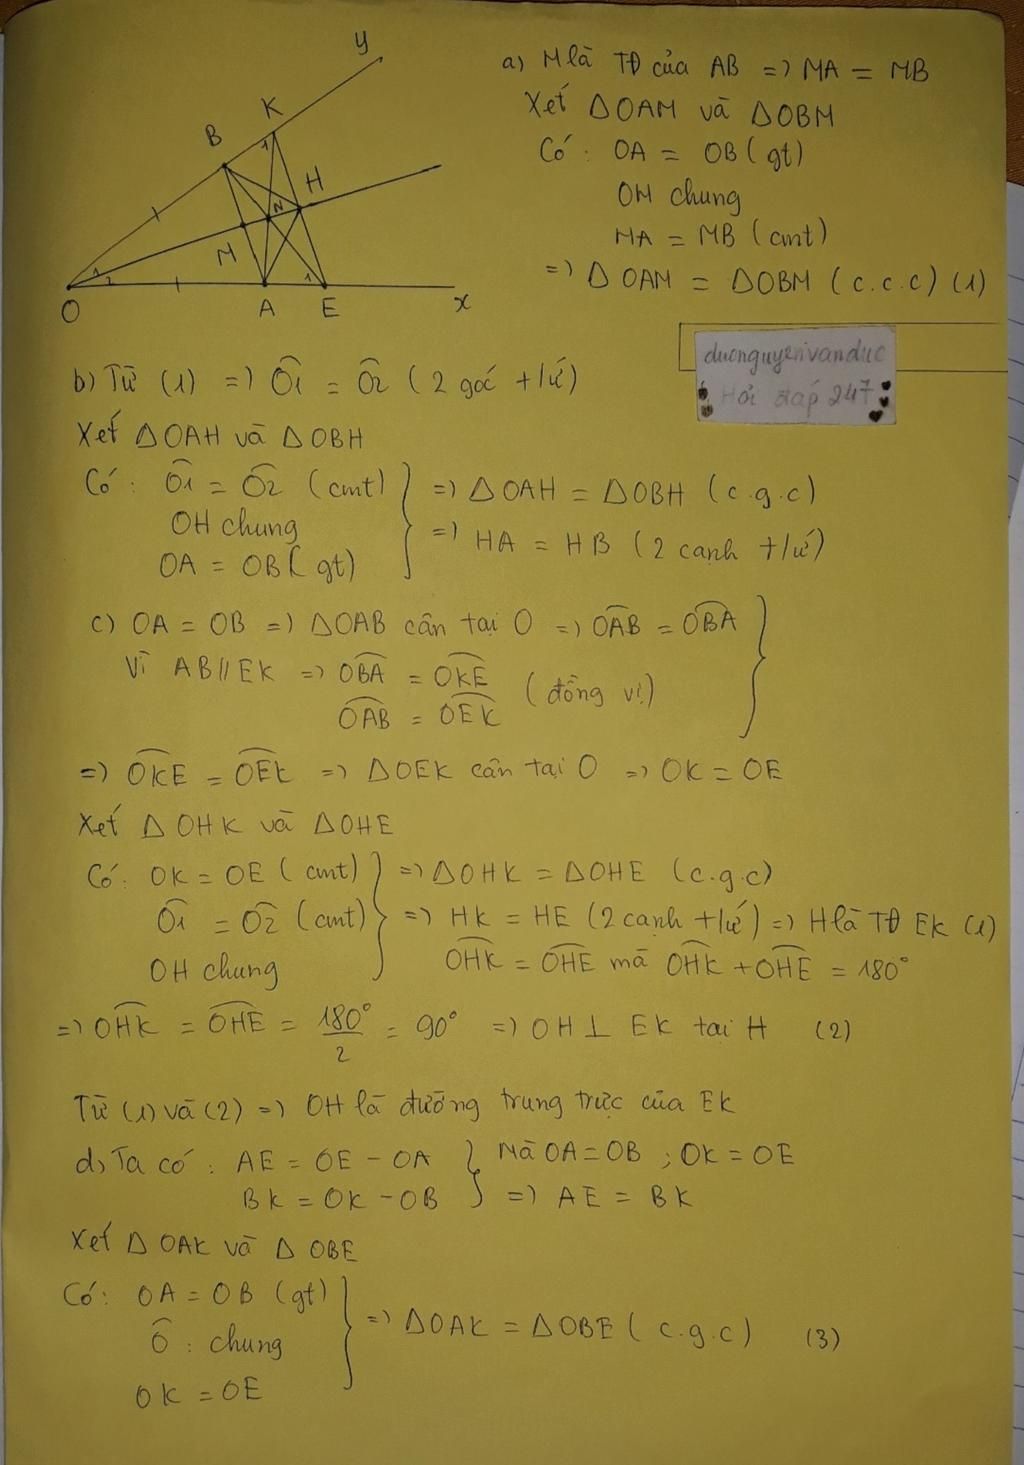 y
K
B
1
H
N
M
1
2
1
O
A
E
x
a) M là TĐ của AB => MA = MB
Xét ΔOAM và ΔOBM
Có: OA = OB (gt)
OM chung
MA = MB (cmt)
=> ΔOAM = ΔOBM (c.c.c) (1)
duongnguyenvanduc
Hỏi đáp 247
b) Từ (1) => Ô1 = Ô2 (2 góc t/ứ)
Xét ΔOAH và ΔOBH
Có: Ô1 = Ô2 (cmt) } => ΔOAH = ΔOBH (c.g.c)
OH chung => HA = HB (2 cạnh t/ứ)
OA = OB (gt)
c) OA = OB => ΔOAB cân tại O => OAB = OBA
Vì AB // EK => OBA = OKE (đồng vị)
OAB = OEK
=> OKE = OEK => ΔOEK cân tại O => OK = OE
Xét ΔOHK và ΔOHE
Có: OK = OE (cmt) } => ΔOHK = ΔOHE (c.g.c)
Ô1 = Ô2 (cmt) => HK = HE (2 cạnh t/ứ) => H là TĐ EK (1)
OH chung OHK = OHE mà OHK + OHE = 180°
=> OHK = OHE = 180°/2 = 90° => OH ⊥ EK tại H (2)
Từ (1) và (2) => OH là đường trung trực của EK
d) Ta có: AE = OE - OA } Mà OA = OB ; OK = OE
BK = OK - OB => AE = BK
Xét ΔOAK và ΔOBE
Có: OA = OB (gt)
Ô : chung } => ΔOAK = ΔOBE (c.g.c) (3)
OK = OE